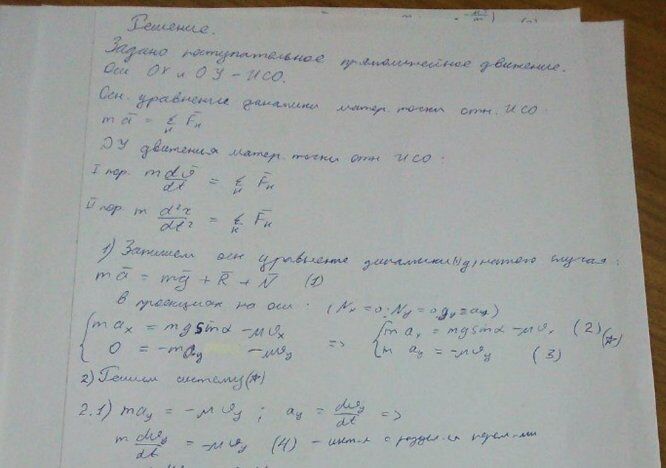 Решение.
Задано поступательное прямолинейное движение.
Оси OX и OY – ИСО.
Осн. уравнение динамики матер. точки отн. ИСО:
m a̅ = Σ_к F̅_к
ДУ движения матер. точки отн ИСО:
I пор. m dv̅/dt = Σ_к F̅_к
II пор. m d²r̅/dt² = Σ_к F̅_к
1) Запишем осн уравнение динамики для данного случая:
m a̅ = m g̅ + R̅ + N̅ (1)
в проекциях на оси: (N_x = 0; N_y = 0; g_y = a_y)
{ m a_x = mg sin α – μv_x => { m a_x = mg sin α – μv_x (2) (*)
0 = –m a_y – μv_y m a_y = –μv_y (3)
2) Решаем систему (*)
2.1) m a_y = –μ v_y ; a_y = dv_y/dt =>
m dv_y/dt = –μv_y (4) –